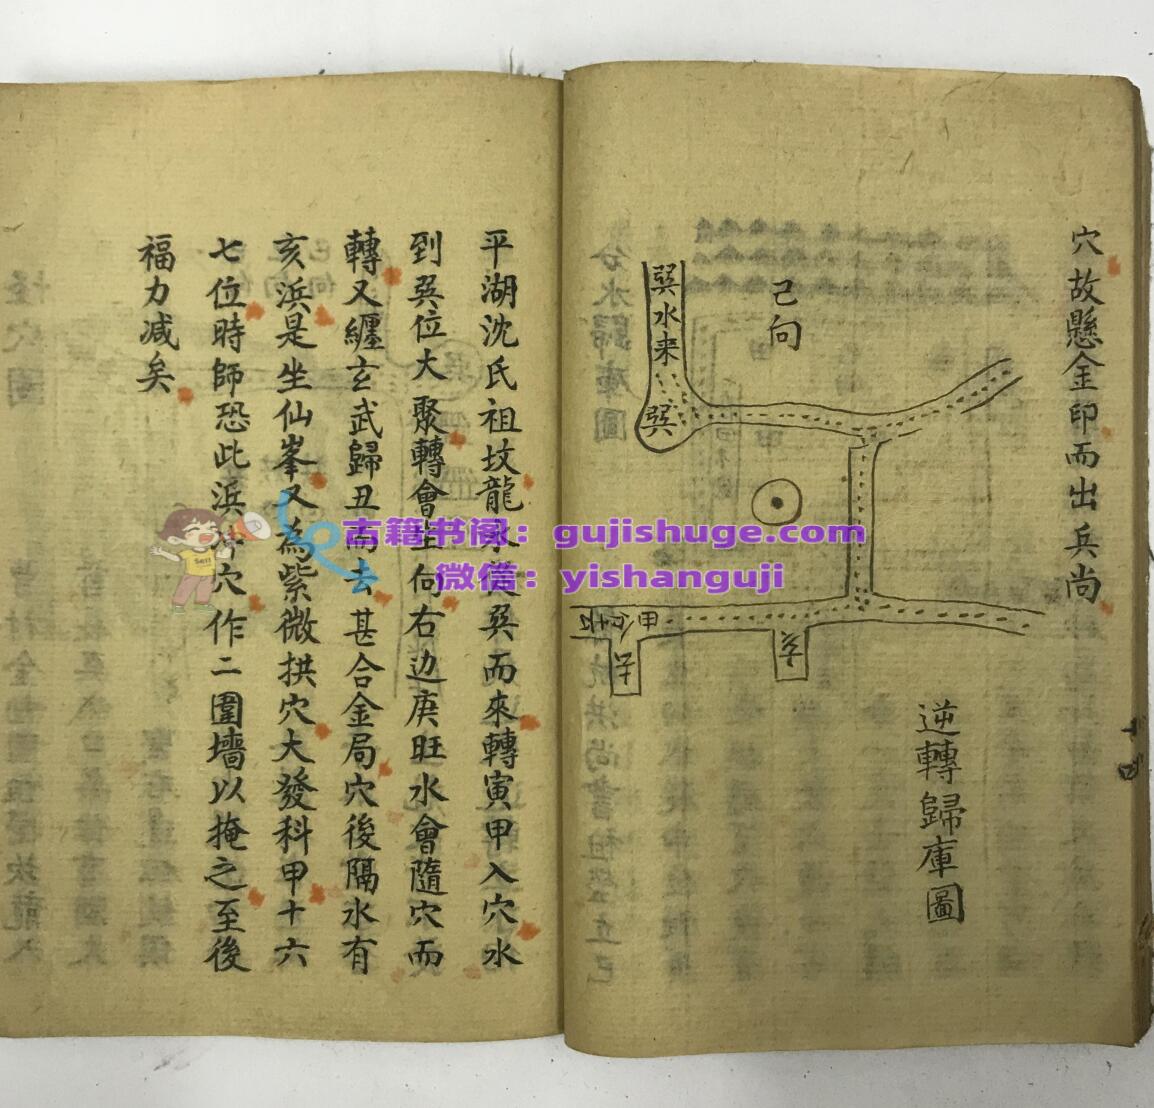 穴故懸金印而出兵尚
逆轉歸庫圖
己向
巽水来
巽
亥
平湖沈氏祖坟龍水從巽而來轉寅甲入穴水
到巽位大聚轉會生向右边庚旺水會隨穴而
轉又纏玄武歸丑而去甚合金局穴後隔水有
亥浜是坐仙峯又為紫微拱穴大發科甲十六
七位時師恐此浜穴作二圍墻以掩之至後
福力减矣
古籍书阁：gujishuge.com
微信：yishanguji